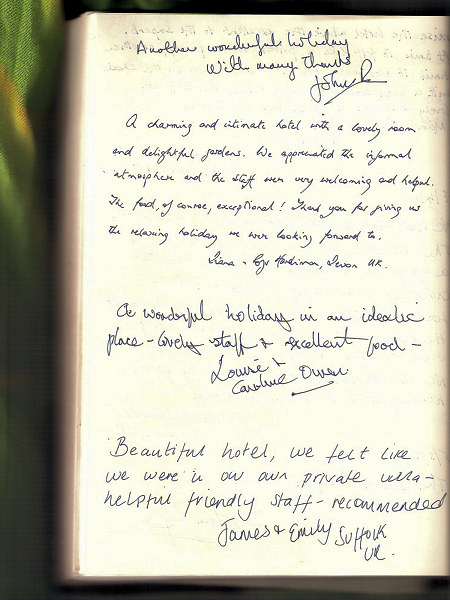 Another wonderful holiday
With many thanks
John
A charming and intimate hotel with a lovely room
and delightful gardens. We appreciated the informal
atmosphere and the staff were very welcoming and helpful.
The food, of course, exceptional! Thank you for giving us
the relaxing holiday we were looking forward to.
Devon UK.
A wonderful holiday in an idealic
place - lovely staff & excellent food -
Louise &
Caroline Owen
Beautiful hotel, we felt like
we were in our own private villa -
helpful friendly staff - recommended
James & Emily Suffolk
UK.